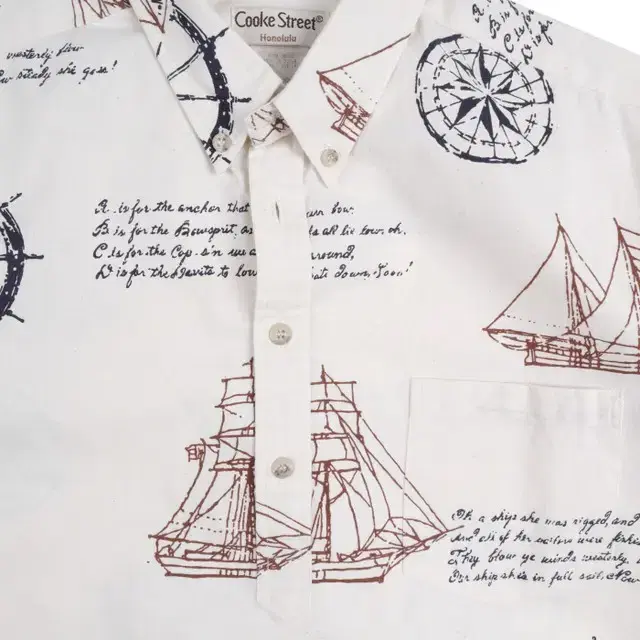 Cooke Street®
Honolulu
A
B
C
westerly blow
steady she goes!
A. is for the anchor that our bow.
B is for the Bowsprit, as all lie low, oh.
C is for the Cap-s'n we a round,
D is for the Davits to low down, Soon!
Oh a ships she was rigged, and
And all of her sailors were fishi
They blow ye winds westerly,
Our ship she is in full sail, Now